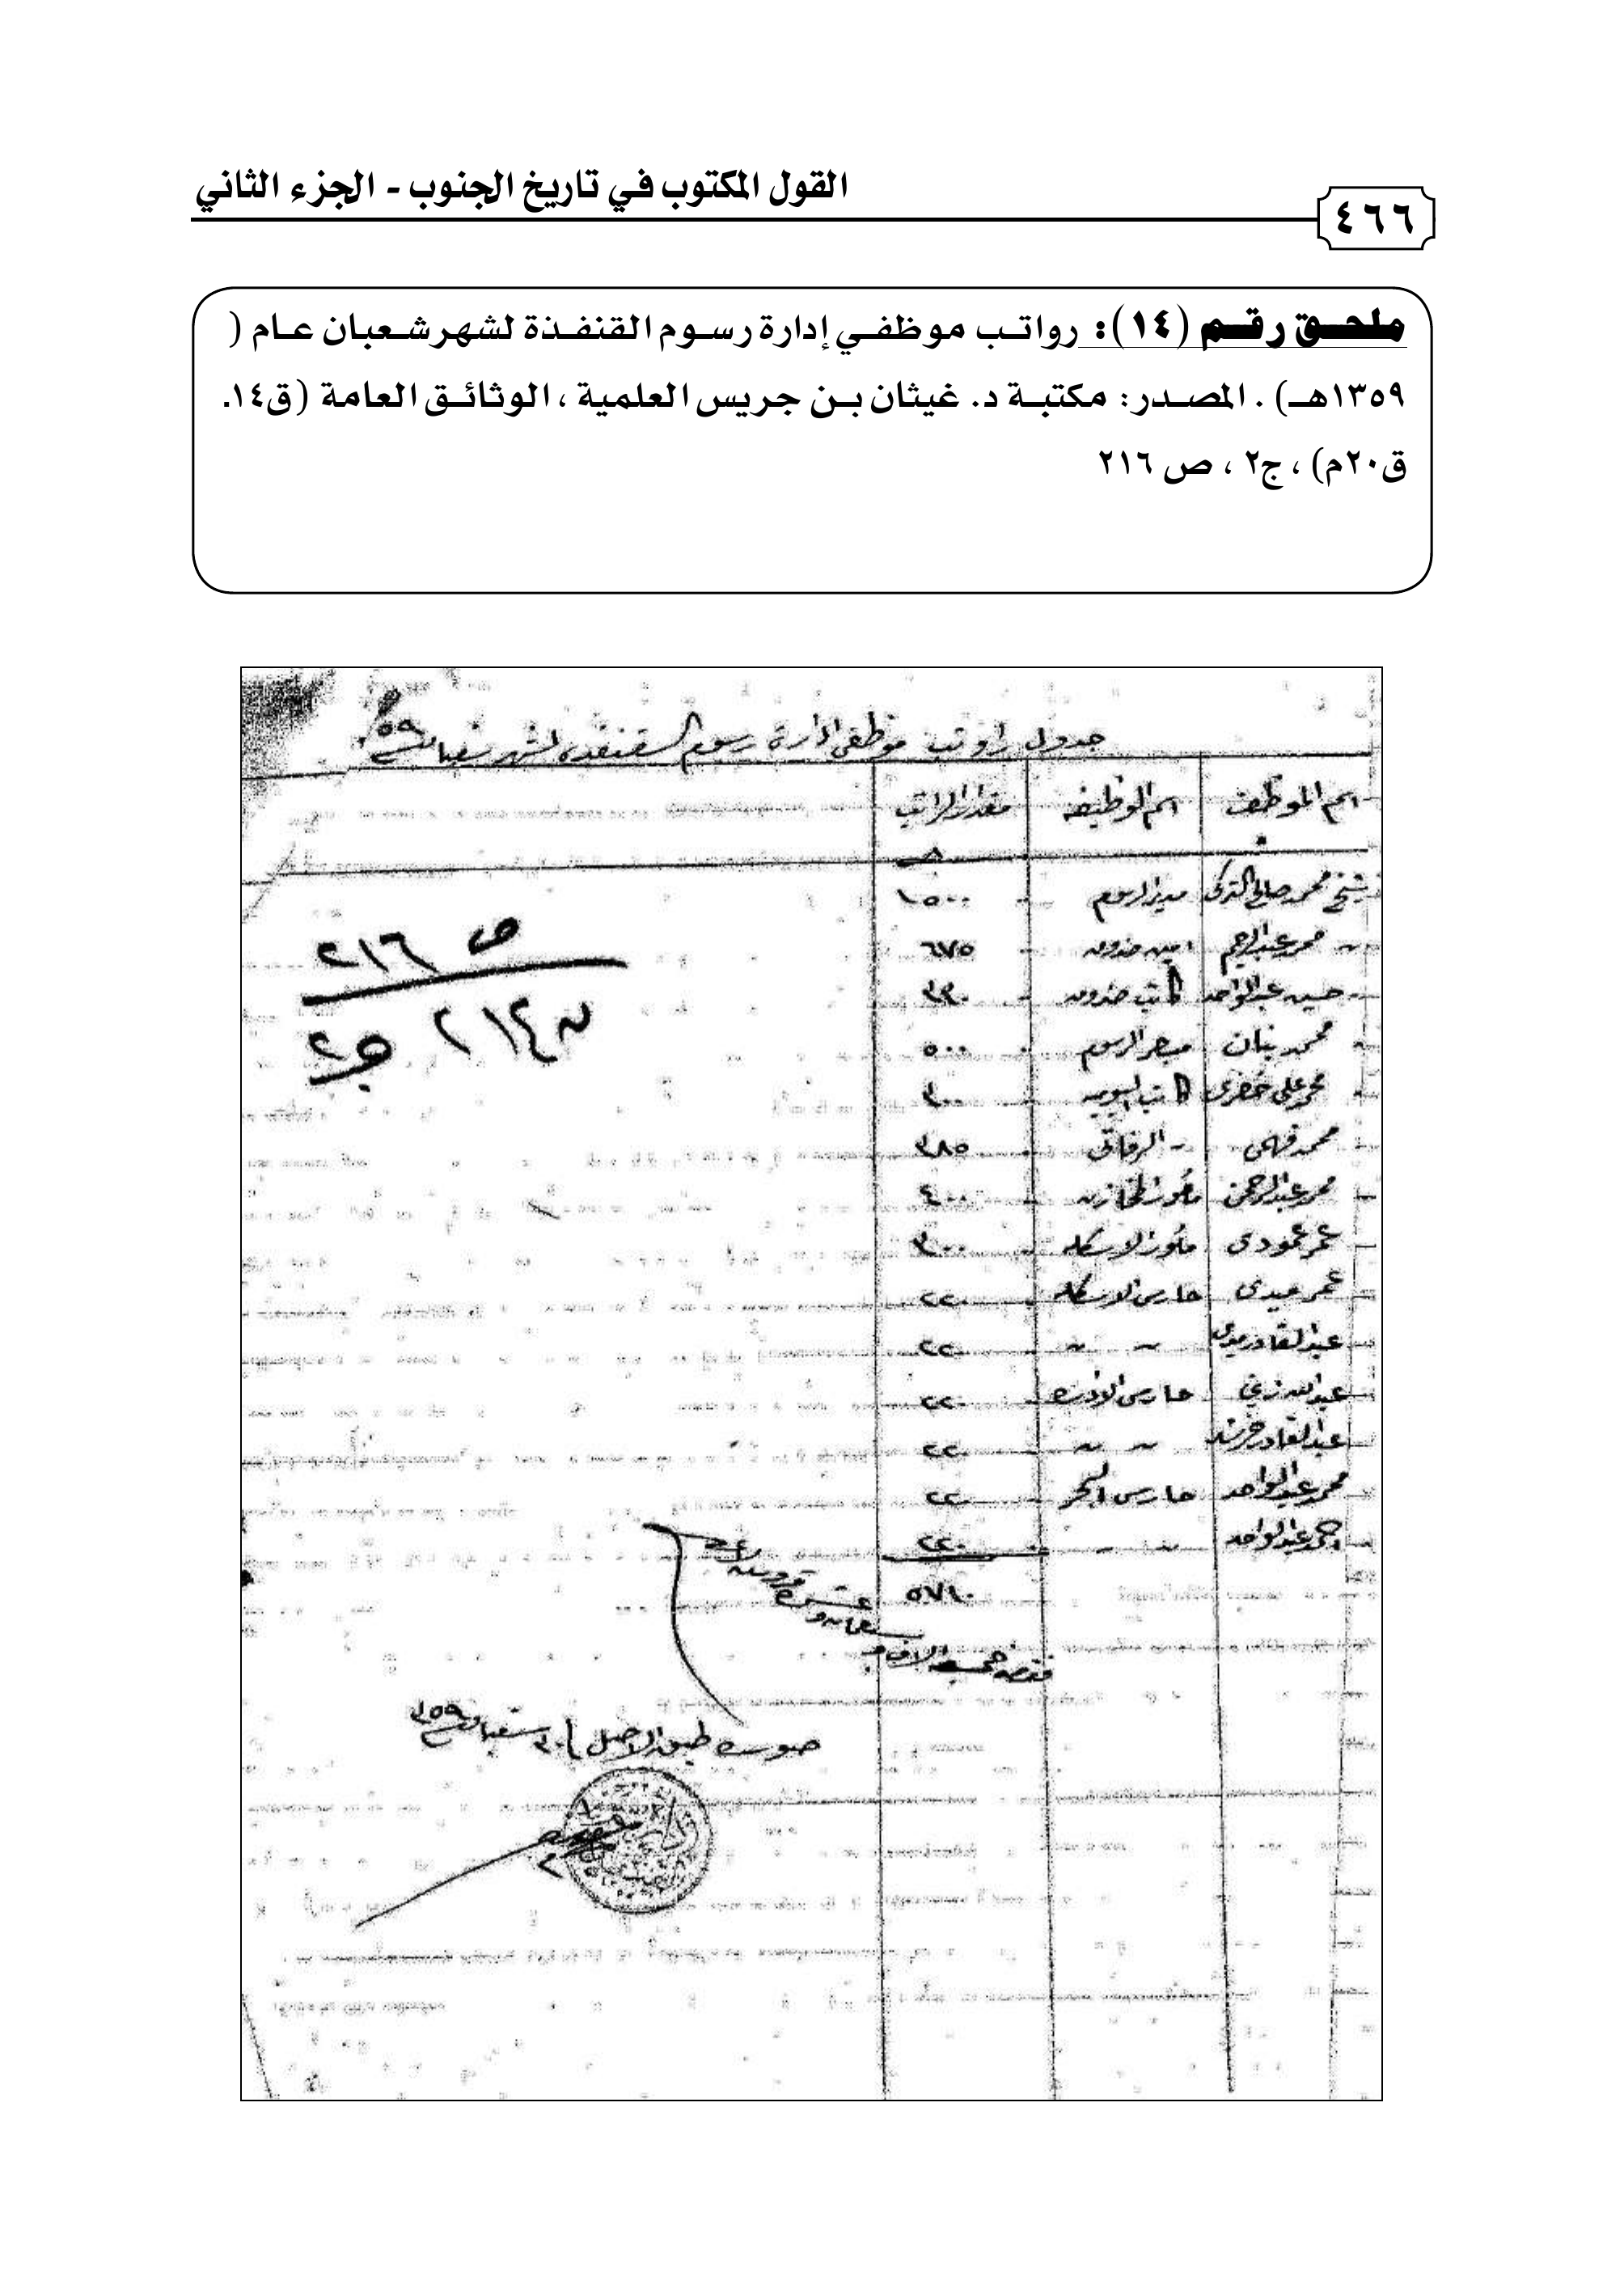 القول المكتوب في تاريخ الجنوب - الجزء الثاني
٤٦٦
ملحق رقم (١٤): رواتب موظفي إدارة رسوم القنفذة لشهر شعبان عام (
١٣٥٩هـ) . المصدر: مكتبة د. غيثان بن جريس العلمية ، الوثائق العامة (ق١٤.
ق٢٠م) ، ج٢ ، ص ٢١٦
جدول رواتب موظفي ادارة رسوم القنفذه لشهر شعبان سنة ٣٥٩
اسم الموظف اسم الوظيفه مقدار الراتب
شيخ محمد صالح التركي مدير الرسوم ١٥٠٠
محمد عبدالرحيم امين صندوق ٦٧٥
حسين عبدالواحد كاتب صندوق
محمد بنان الرسوم ٥٠٠
محمد علي خضري كاتب اليوميه ٣٠٠
محمد فهمي ٣٨٥
محمد عبدالرحمن مأمور المخازن ٤٠٠
عمر عمودي مأمور الاسكله ٣٠٠
عمر عيدي حارس الاسكله ٢٢٠
عبدالقادر ٢٢٠
عبدالله حارس الاداره ٢٢٠
عبدالقادر ٢٢٠
محمد عبدالواحد حارس البحر ٢٢٠
عبدالواحد ٢٢٠
فقط خمسة الاف و
صورة طبق الاصل ٣٠ شعبان سنة ٣٥٩
ص ٢١٦
ق ١٤
ج٢